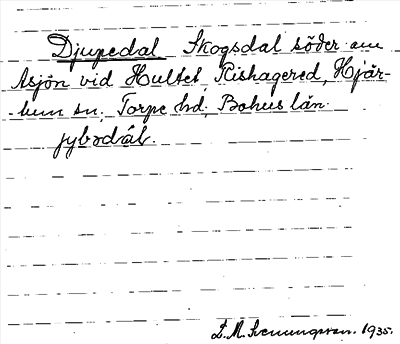 Djupedal Skogsdal söder om
Åsjön vid Hultet, Rishagered, Hjär-
-tum sn, Torpe hd, Bohus län.
jybodål.
L. M. Svenungsson. 1935.